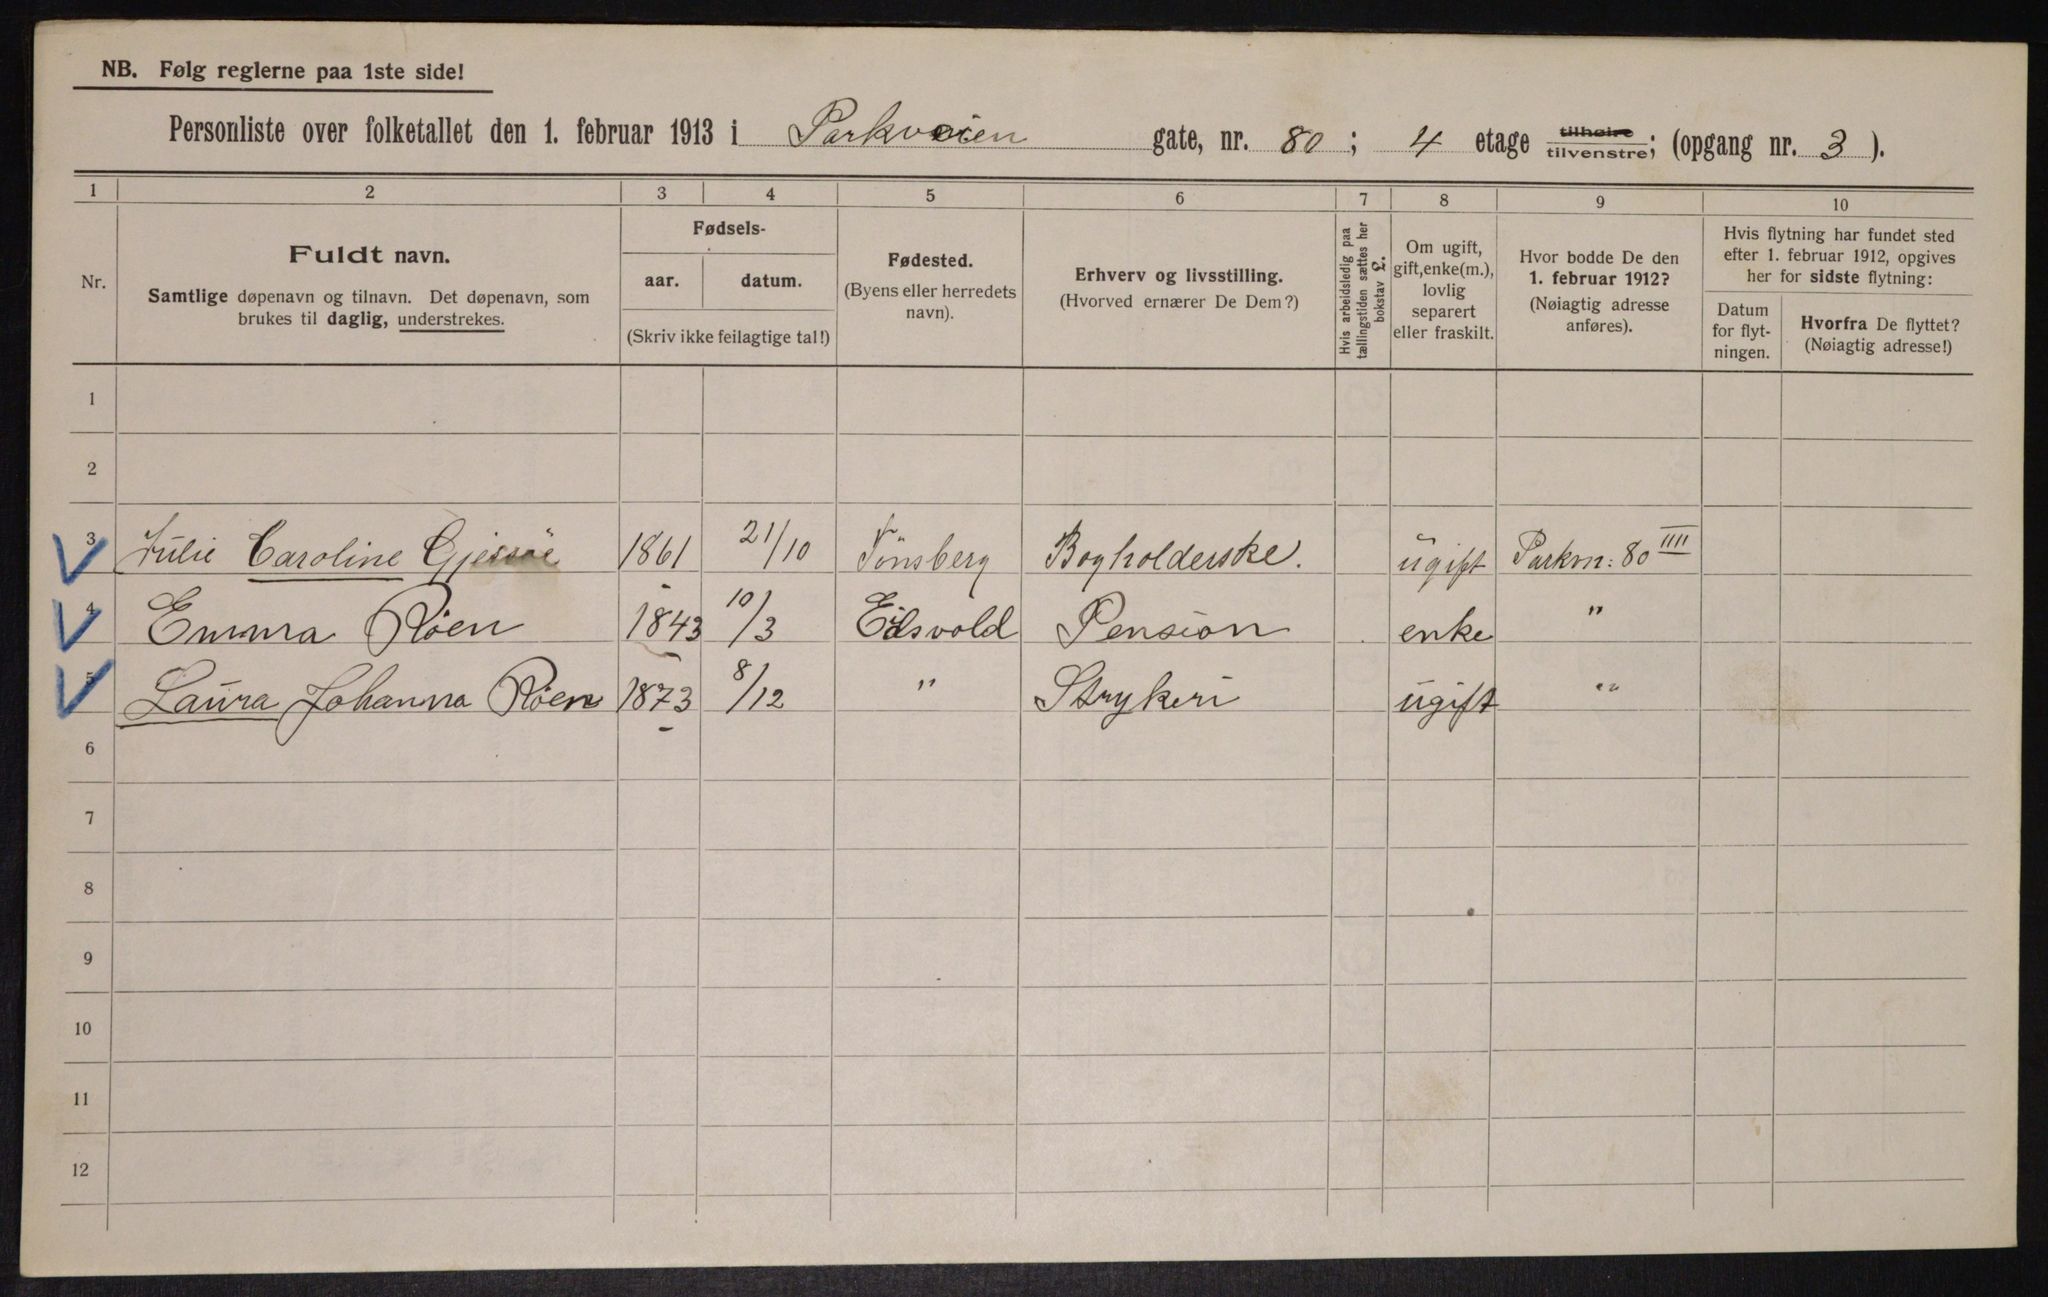 NB. Følg reglerne paa 1ste side!
Personliste over folketallet den 1. februar 1913 i Parkveien gate, nr. 80 ; 4 etage tilhøire tilvenstre; (opgang nr. 3 ).
1 2 3 4 5 6 7 8 9 10
Nr.
Fuldt navn.
Samtlige døpenavn og tilnavn. Det døpenavn, som
brukes til daglig, understrekes.
Fødsels-
aar. datum.
(Skriv ikke feilagtige tal!)
Fødested.
(Byens eller herredets
navn).
Erhverv og livsstilling.
(Hvorved ernærer De Dem?)
Hvis arbeidsledig paa
tællingstiden sættes her
bokstav L.
Om ugift,
gift, enke(m.),
lovlig
separert
eller fraskilt.
Hvor bodde De den
1. februar 1912?
(Nøiagtig adresse
anføres).
Hvis flytning har fundet sted
efter 1. februar 1912, opgives
her for sidste flytning:
Datum
for flyt-
ningen.
Hvorfra De flyttet?
(Nøiagtig adresse!)
1
2
3 Julie Caroline Gjessøe 1861 21/10 Tönsberg Bogholderske. ugift Parkvn: 80 IIII
4 Emma Röen 1843 10/3 Eidsvold Pension enke "
5 Laura Johanna Röen 1873 8/12 " Strykeri ugift "
6
7
8
9
10
11
12